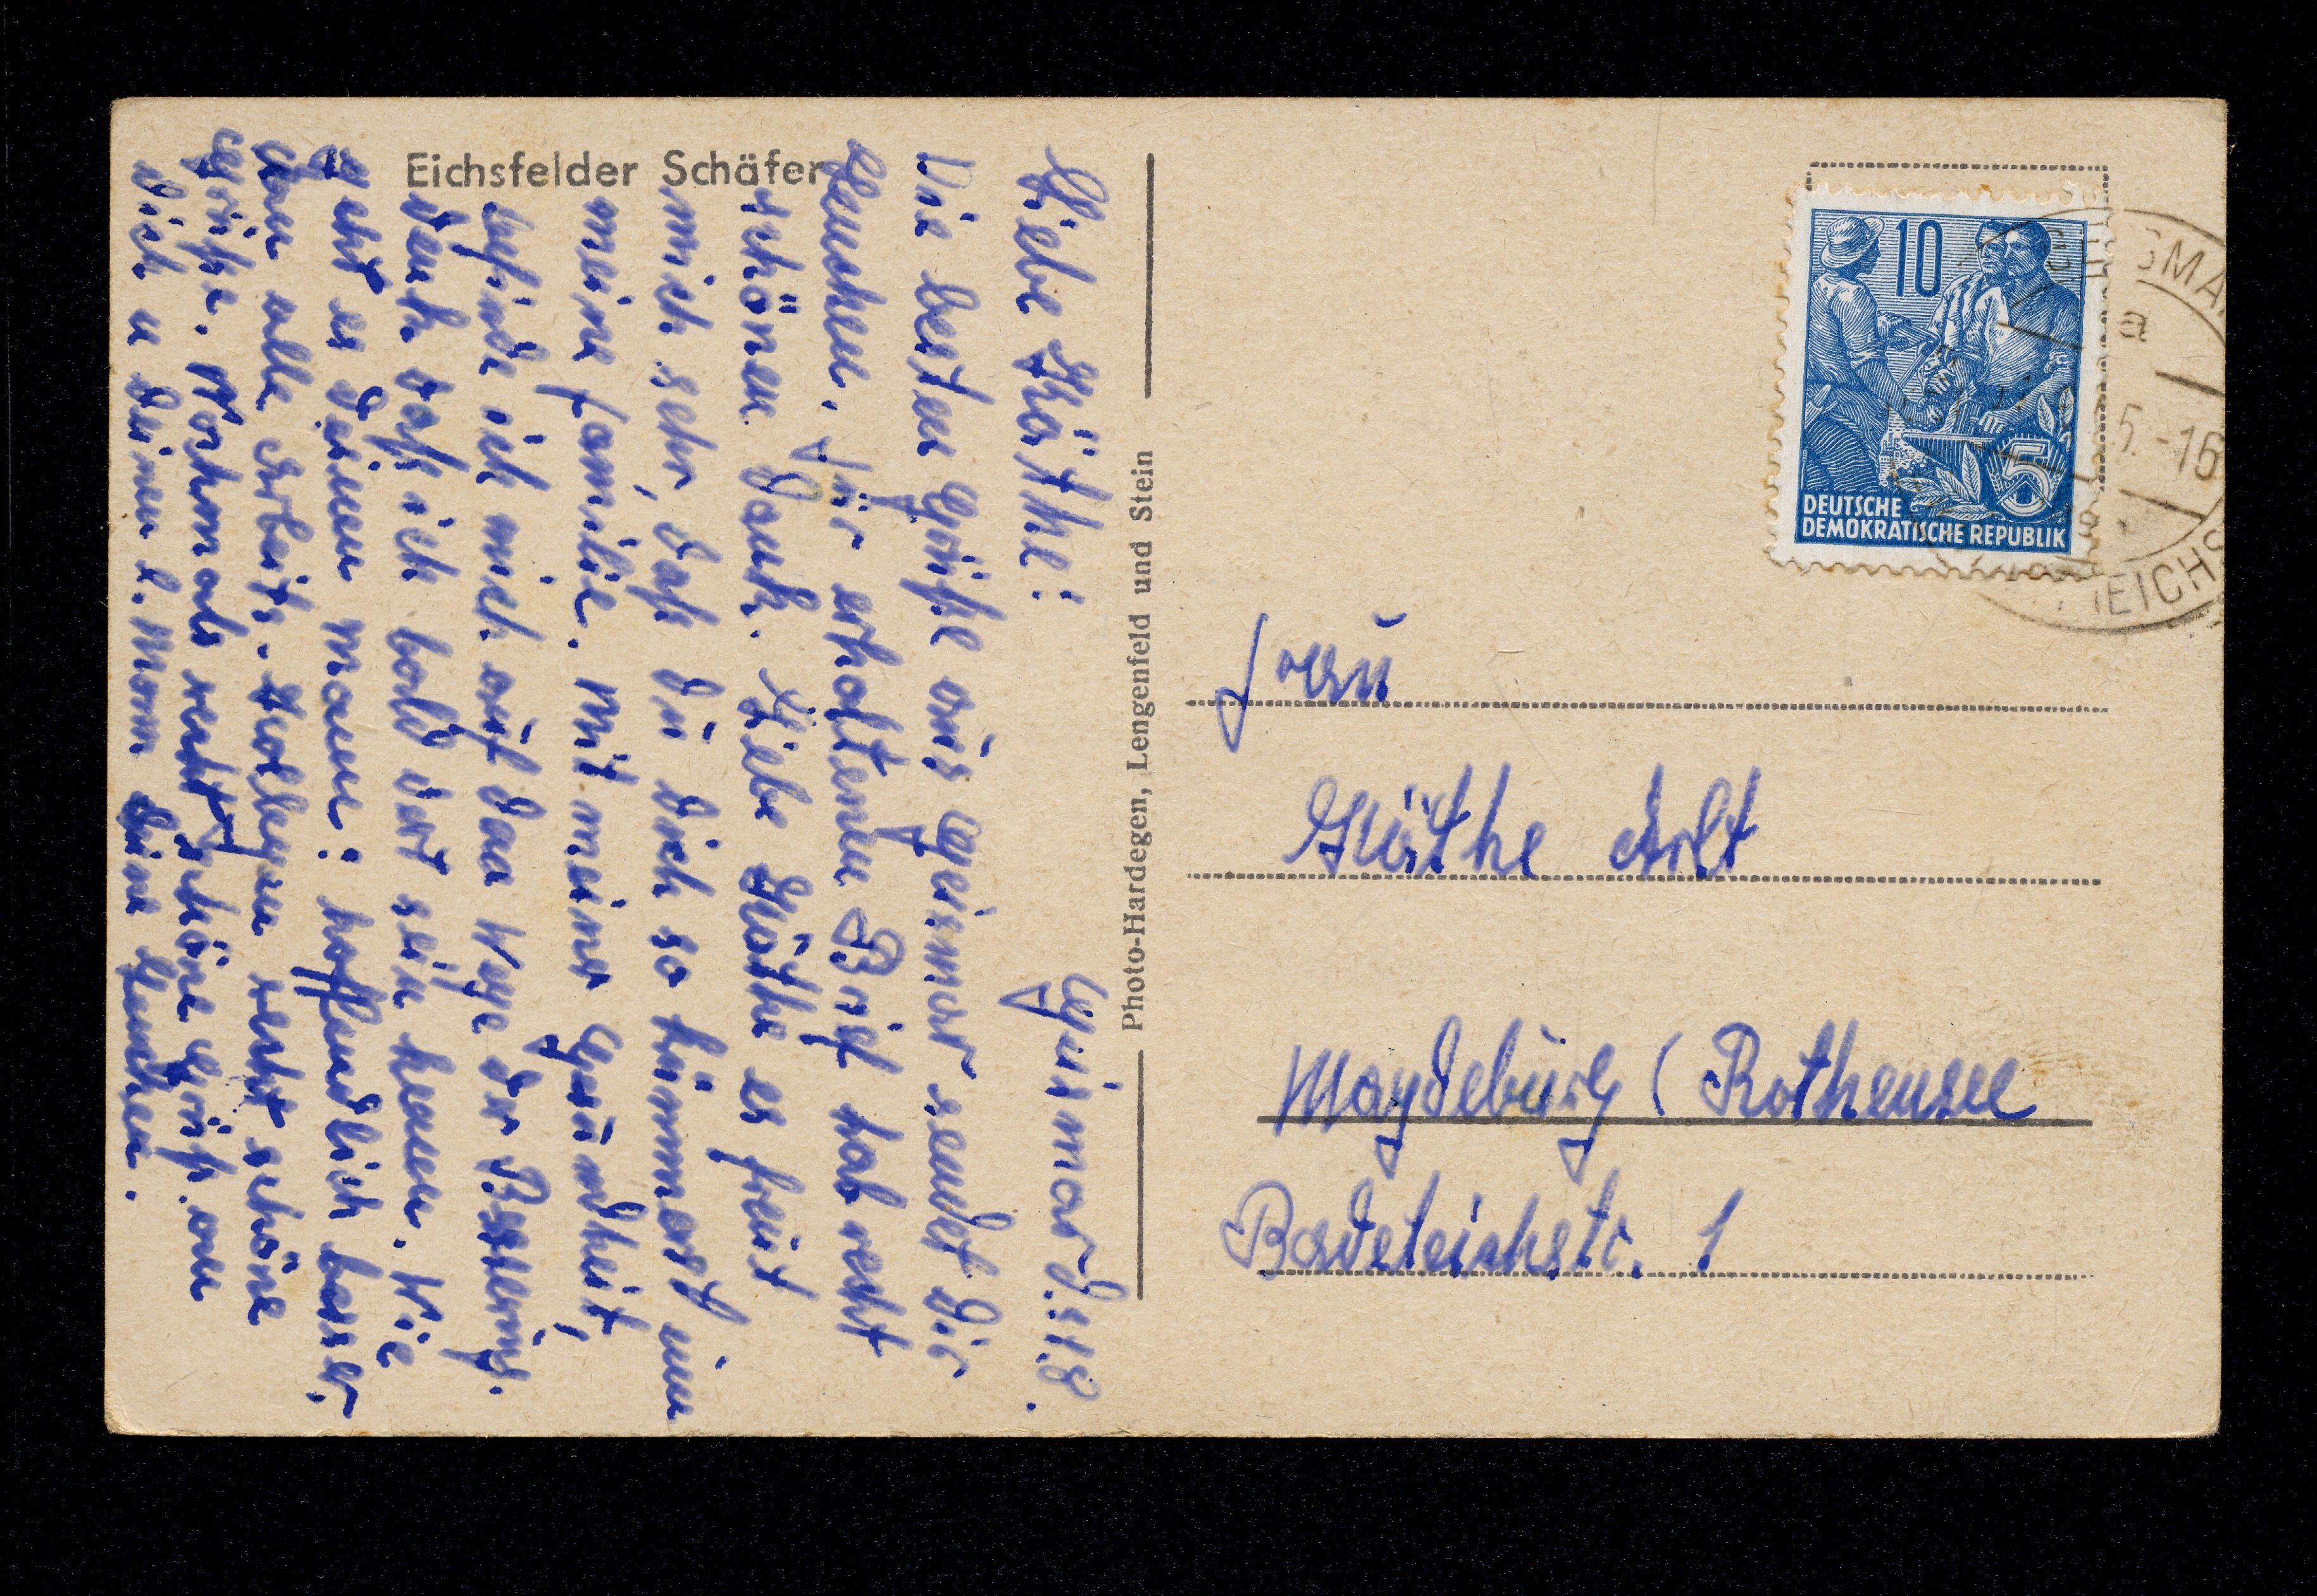 Eichsfelder Schäfer
Geismar d. 11.8.
Liebe Käthe!
Die besten Grüße aus Geismar sendet dir
Lenchen. Für erhaltenen Brief hab recht
schönen Dank. Liebe Käthe es freut
mich sehr, daß du dich so kümmerst um
meine Familie. Mit meiner Gesundheit,
befinde ich mich auf dem Wege der Besserung.
denk daß ich bald dort sein kann. Wie
geht es deinen Mann: hoffendlich besser.
an alle Arbeits-Kollegen recht schöne
Grüße. Nochmals recht schöne Grüße an
Dich u deinen l. Mann deine Lenchen.
Photo-Hardegen, Lengenfeld und Stein
10
5
DEUTSCHE
DEMOKRATISCHE REPUBLIK
a
5.-16
EICHS
Frau
Käthe Arlt
Magdeburg (Rothensee
Badeteichstr. 1